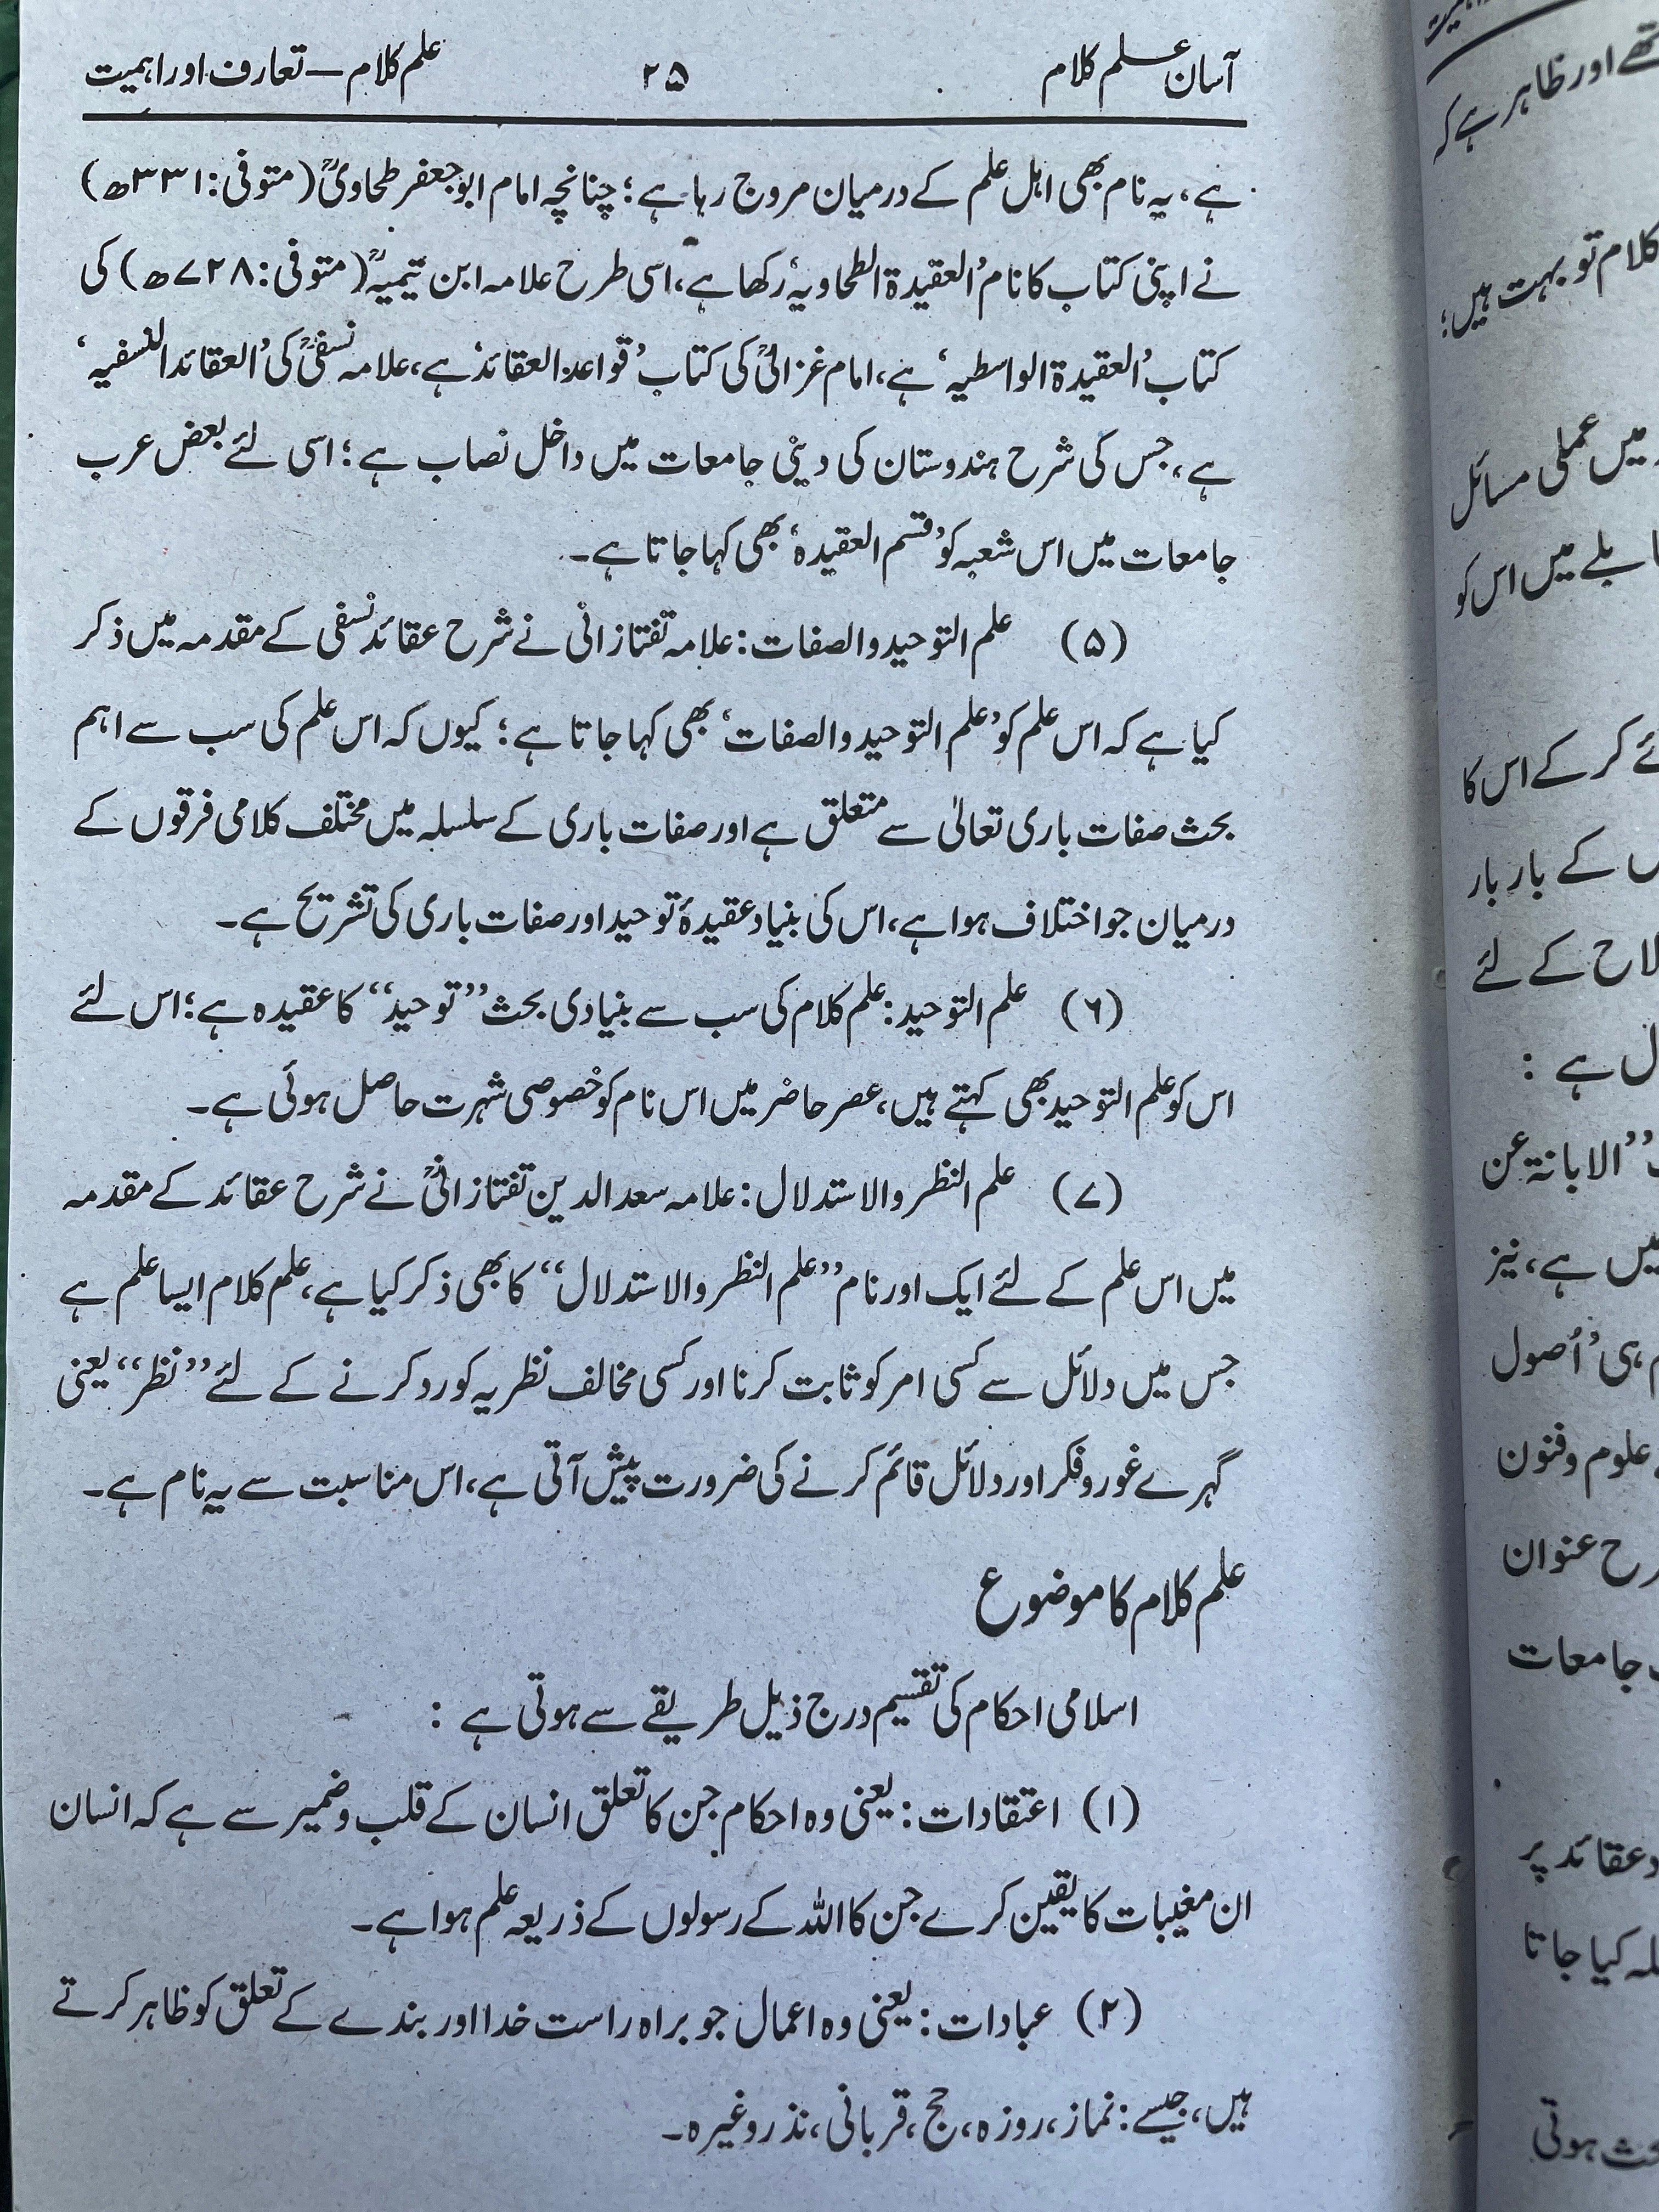 آسان علم کلام ۲۵ علم کلام — تعارف اور اہمیت
ہے، یہ نام بھی اہل علم کے درمیان مروج رہا ہے؛ چنانچہ امام ابوجعفر طحاویؒ (متوفی: ۳۳۱ھ)
نے اپنی کتاب کا نام ’العقیدۃ الطحاویہ‘ رکھا ہے، اسی طرح علامہ ابن تیمیہؒ (متوفی: ۷۲۸ھ) کی
کتاب ’العقیدۃ الواسطیہ‘ ہے، امام غزالیؒ کی کتاب ’قواعد العقائد‘ ہے، علامہ نسفیؒ کی ’العقائد النسفیہ‘
ہے، جس کی شرح ہندوستان کی دینی جامعات میں داخل نصاب ہے؛ اسی لئے بعض عرب
جامعات میں اس شعبہ کو ’قسم العقیدہ‘ بھی کہا جاتا ہے۔
(۵) علم التوحید والصفات: علامہ تفتازانی نے شرح عقائد نسفی کے مقدمہ میں ذکر
کیا ہے کہ اس علم کو ’علم التوحید والصفات‘ بھی کہا جاتا ہے؛ کیوں کہ اس علم کی سب سے اہم
بحث صفات باری تعالیٰ سے متعلق ہے اور صفات باری کے سلسلہ میں مختلف کلامی فرقوں کے
درمیان جو اختلاف ہوا ہے، اس کی بنیاد عقیدۂ توحید اور صفات باری کی تشریح ہے۔
(۶) علم التوحید: علم کلام کی سب سے بنیادی بحث ”توحید“ کا عقیدہ ہے؛ اس لئے
اس کو علم التوحید بھی کہتے ہیں، عصر حاضر میں اس نام کو خصوصی شہرت حاصل ہوئی ہے۔
(۷) علم النظر والاستدلال: علامہ سعد الدین تفتازانیؒ نے شرح عقائد کے مقدمہ
میں اس علم کے لئے ایک اور نام ”علم النظر والاستدلال“ کا بھی ذکر کیا ہے، علم کلام ایسا علم ہے
جس میں دلائل سے کسی امر کو ثابت کرنا اور کسی مخالف نظریہ کو رد کرنے کے لئے ”نظر“ یعنی
گہرے غور و فکر اور دلائل قائم کرنے کی ضرورت پیش آتی ہے، اس مناسبت سے یہ نام ہے۔
علم کلام کا موضوع
اسلامی احکام کی تقسیم درج ذیل طریقے سے ہوتی ہے :
(۱) اعتقادات: یعنی وہ احکام جن کا تعلق انسان کے قلب و ضمیر سے ہے کہ انسان
ان مغیبات کا یقین کرے جن کا اللہ کے رسولوں کے ذریعہ علم ہوا ہے۔
(۲) عبادات: یعنی وہ اعمال جو براہ راست خدا اور بندے کے تعلق کو ظاہر کرتے
ہیں، جیسے: نماز، روزہ، حج، قربانی، نذر وغیرہ۔
تھے اور ظاہر ہے کہ
کلام تو بہت ہیں؛
میں عملی مسائل
بلے میں اس کو
کر کے اس کا
کے بار بار
کے لئے
ہے :
”الابانۃ عن
میں ہے، نیز
ہی ’اُصول
علوم و فنون
عنوان
جامعات
عقائد پر
کیا جاتا
ہوتی